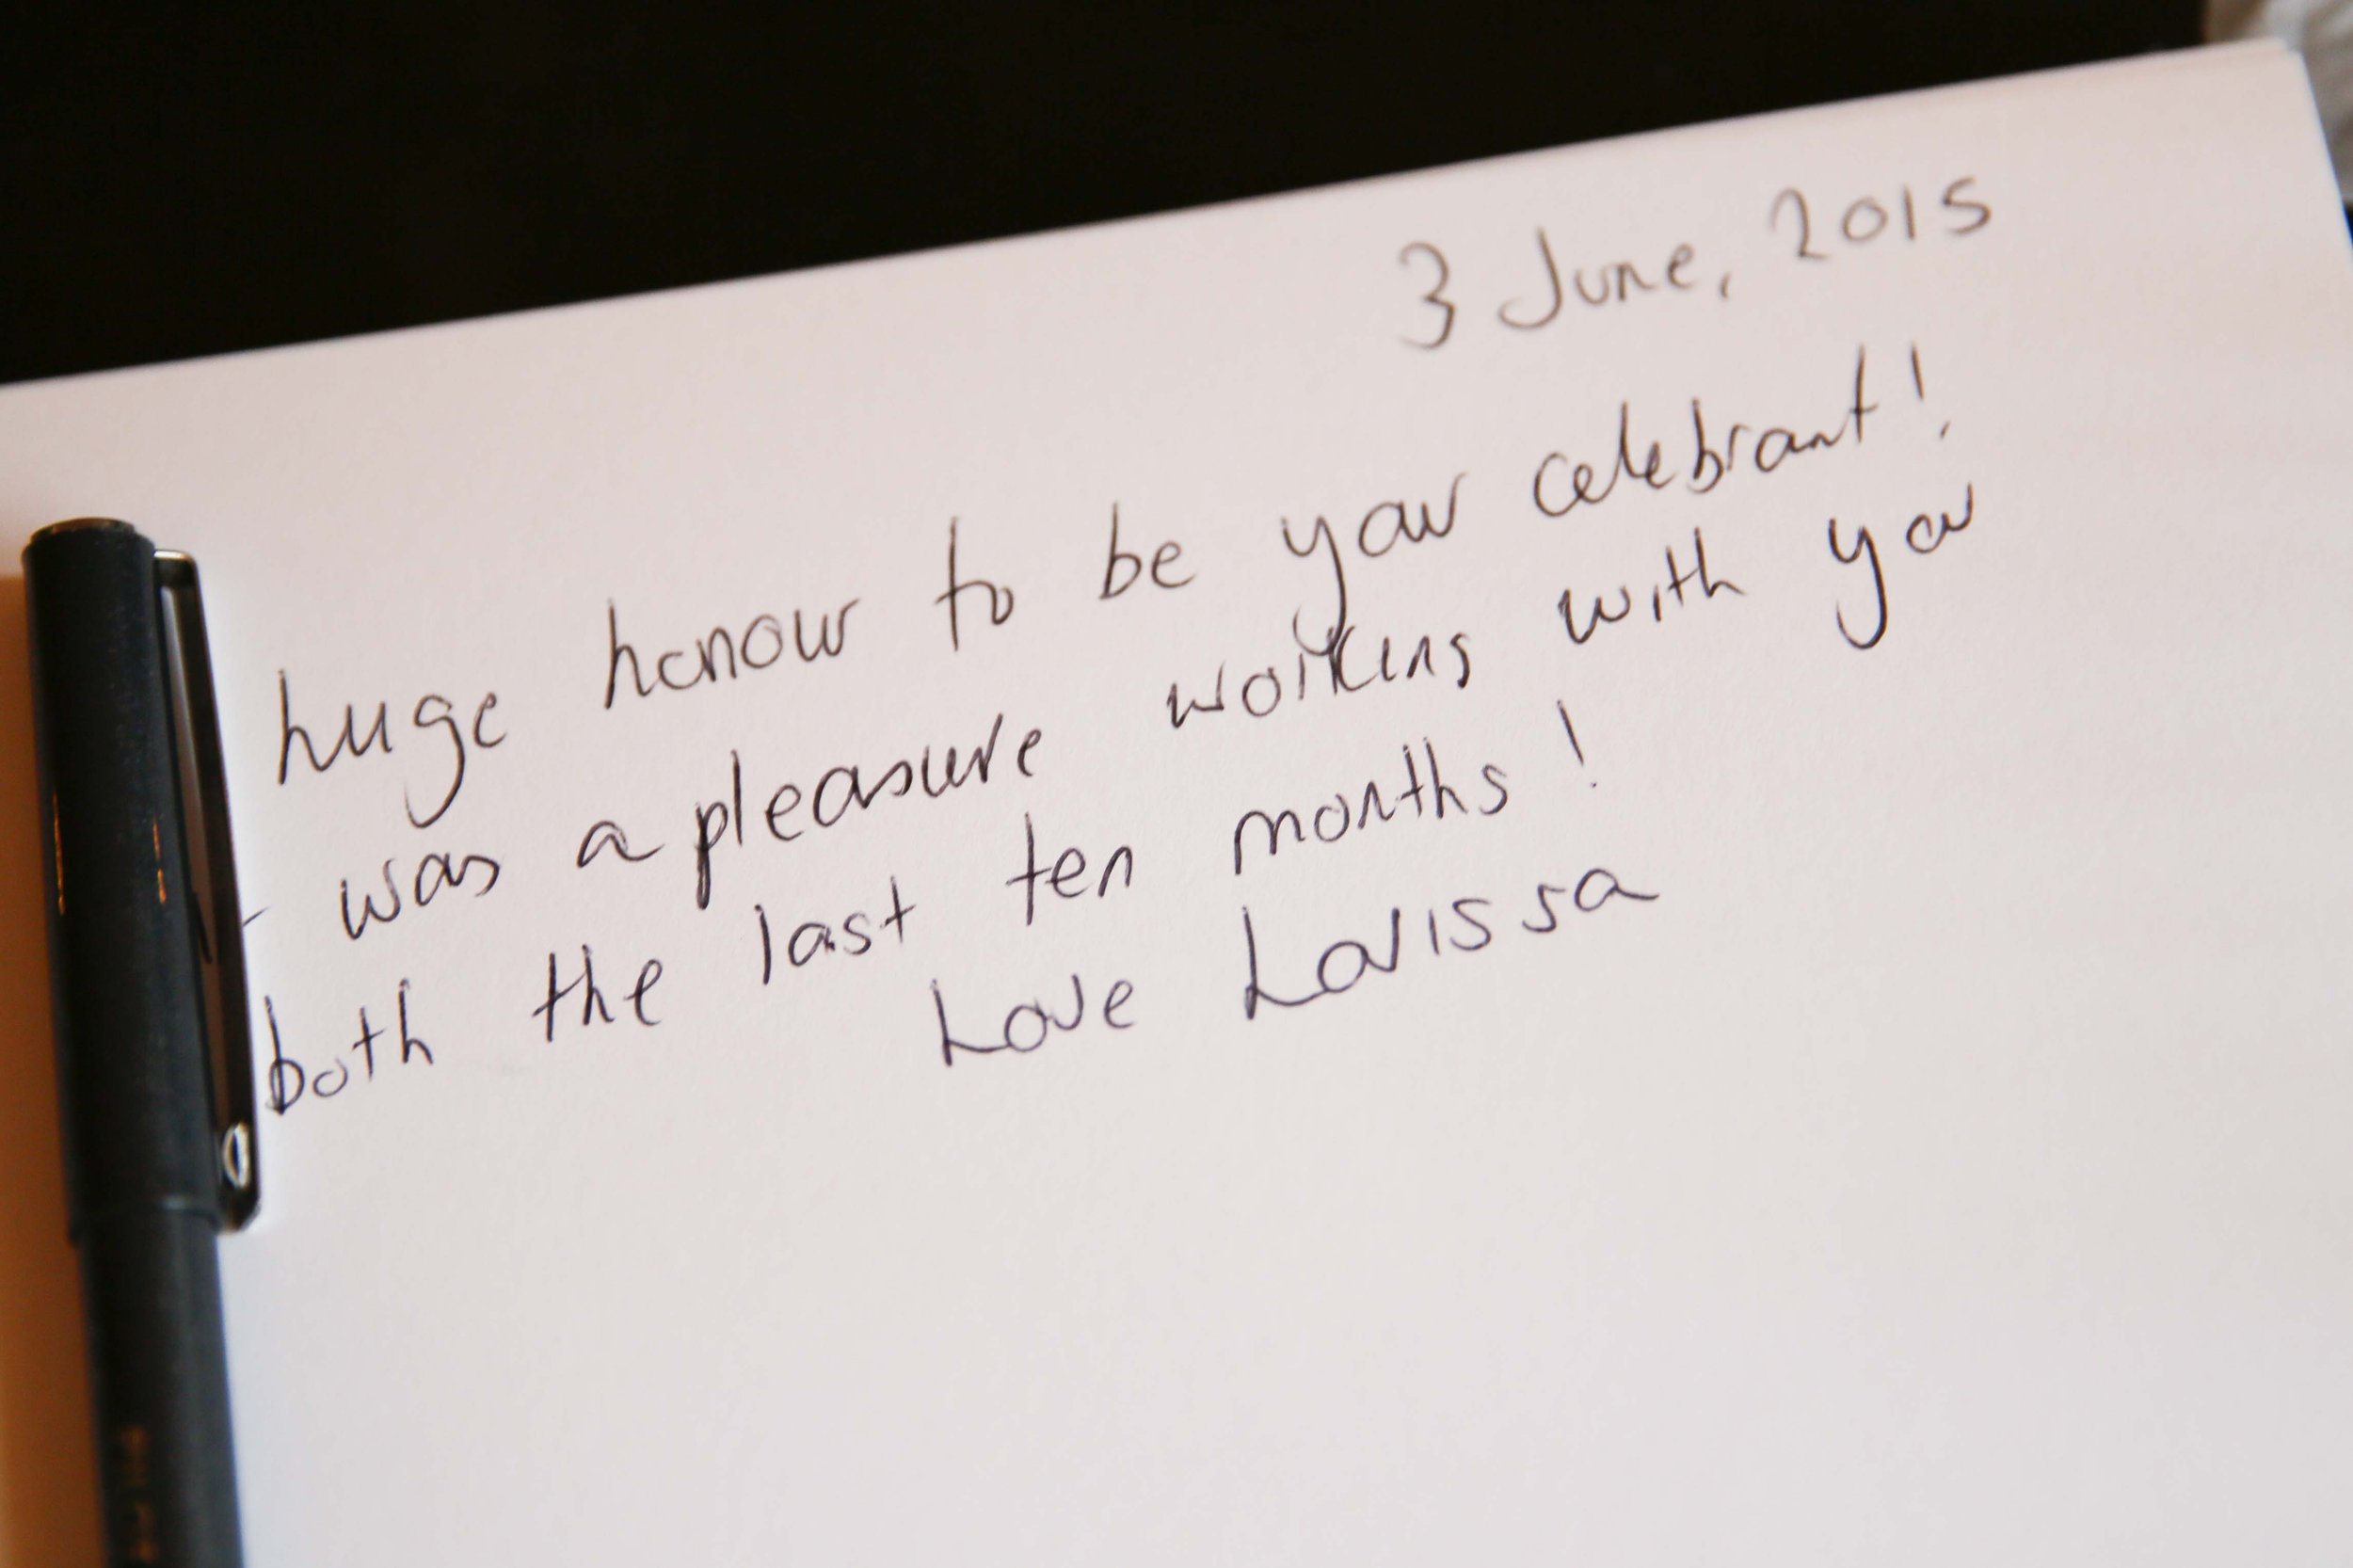 3 June, 2015
huge honour to be your celebrant!
was a pleasure working with you
both the last ten months!
Love Larissa